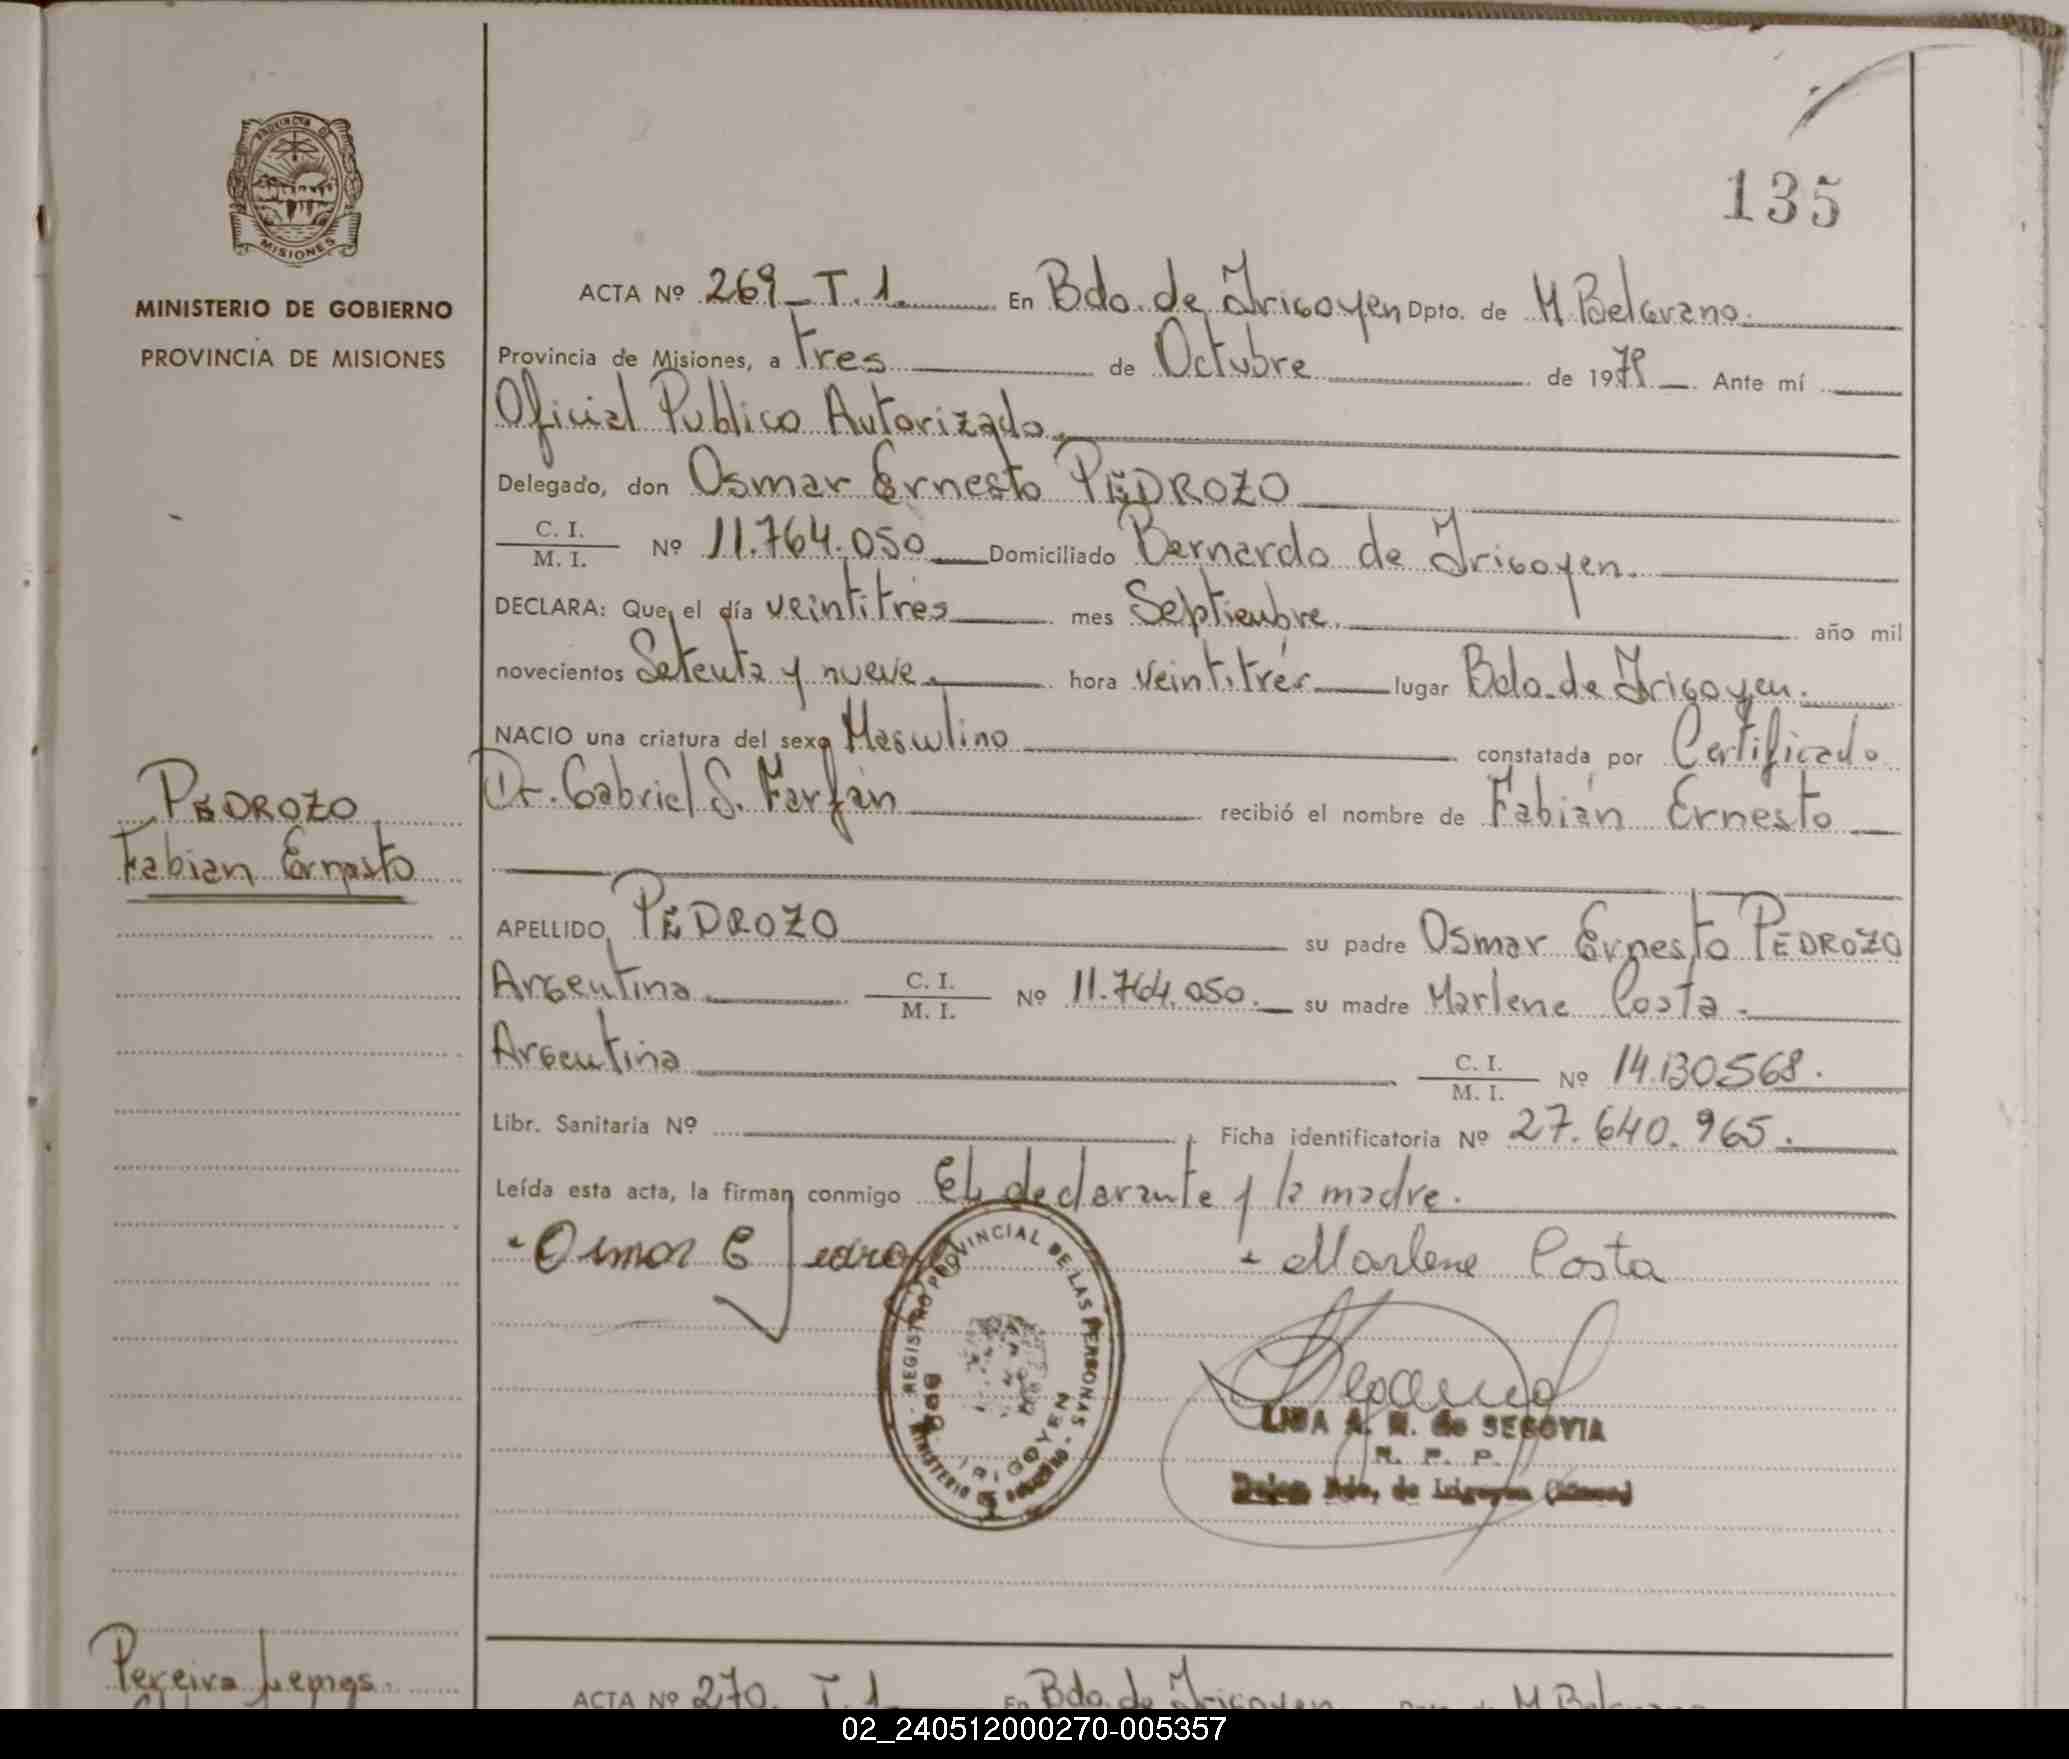 PROVINCIA DE
MISIONES
MINISTERIO DE GOBIERNO
PROVINCIA DE MISIONES
135
ACTA Nº 269_T.1. En Bdo. de Irigoyen Dpto. de M Belgrano.
Provincia de Misiones, a tres de Octubre de 1979 Ante mí
Oficial Publico Autorizado.
Delegado, don Osmar Ernesto PEDROZO
C. I.
M. I. Nº 11.764.050 Domiciliado Bernardo de Irigoyen.
DECLARA: Que el día veintitres mes Septiembre. año mil
novecientos Setenta y nueve. hora veintitrés lugar Bdo. de Irigoyen.
NACIO una criatura del sexo Masculino constatada por Certificado
Dr. Gabriel S. Farfán recibió el nombre de Fabián Ernesto
PEDROZO
Fabian Ernesto
APELLIDO PEDROZO su padre Osmar Ernesto PEDROZO
Argentina C. I.
M. I. Nº 11.764.050. su madre Marlene Costa.
Argentina C. I.
M. I. Nº 14.130.568.
Libr. Sanitaria Nº Ficha identificatoria Nº 27.640.965.
Leída esta acta, la firman conmigo El declarante y la madre.
Osmar E Pedrozo Marlene Costa
REGISTRO PROVINCIAL DE LAS PERSONAS
MINISTERIO DE GOBIERNO
BDO. IRIGOYEN
A. M. de SEGOVIA
R. P. P.
Bdo. de Irigoyen
Pereira Lemos
ACTA Nº 270. T.1. En Bdo. de Irigoyen M Belgrano
02_240512000270-005357